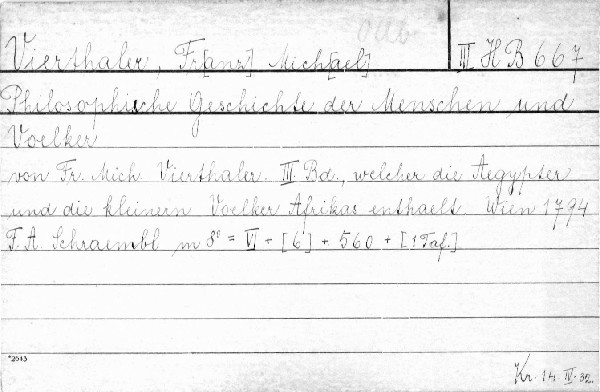 Vierthaler, Fr[anz] Mich[ael] III HB 667
Philosophische Geschichte der Menschen und
Voelker
von Fr. Mich. Vierthaler. III Bd., welcher die Aegypter
und die kleinern Voelker Afrikas enthaelt Wien 1794
F. A. Schraembl m 8° = VI + [6] + 560 + [1 Taf.]
*2613
Kr. 14 IV. 32.